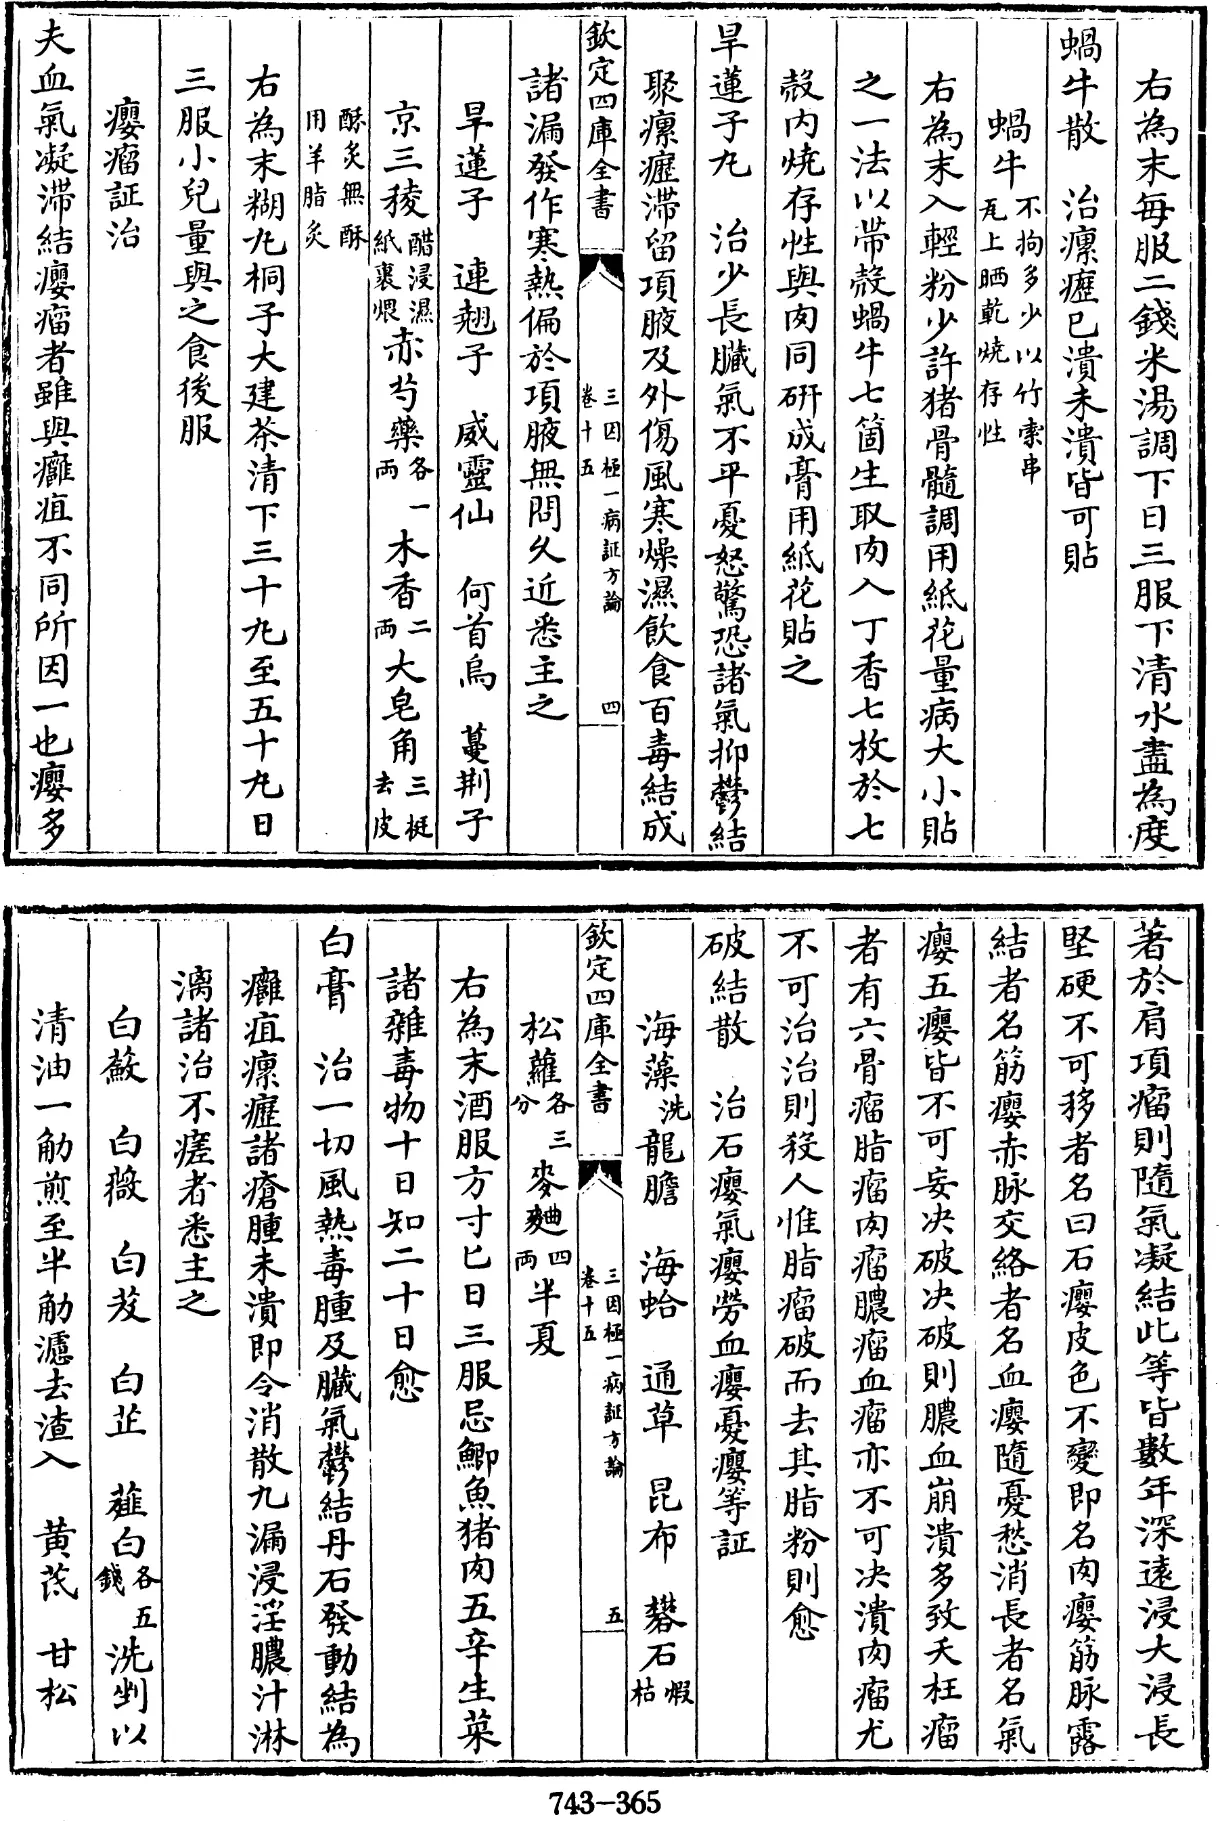 右為末每服二錢米湯調下日三服下清水盡為度
蝸牛散　治瘰癧已潰未潰皆可貼
蝸牛不拘多少以竹索串瓦上晒乾燒存性
右為末入輕粉少許猪骨髓調用紙花量病大小貼
之一法以帶殻蝸牛七箇生取肉入丁香七枚於七
殻内燒存性與肉同研成膏用紙花貼之
旱蓮子丸　治少長臓氣不平憂怒驚恐諸氣抑鬱結
聚瘰癧滯留項腋及外傷風寒燥濕飲食百毒結成
欽定四庫全書　三因極一病証方論卷十五　四
諸漏發作寒熱偏於項腋無問久近悉主之
旱蓮子　連翹子　威靈仙　何首烏　蔓荆子
京三稜醋浸濕紙裹煨赤芍藥各一兩木香二兩大皂角三挺去皮
酥炙無酥用羊脂炙
右為末糊丸桐子大建茶清下三十丸至五十丸日
三服小兒量與之食後服
癭瘤証治
夫血氣凝滯結癭瘤者雖與癰疽不同所因一也癭多
著於肩項瘤則隨氣凝結此等皆數年深遠浸大浸長
堅硬不可移者名曰石癭皮色不變即名肉癭筋脉露
結者名筋癭赤脉交絡者名血癭隨憂愁消長者名氣
癭五癭皆不可妄决破决破則膿血崩潰多致夭枉瘤
者有六骨瘤脂瘤肉瘤膿瘤血瘤亦不可决潰肉瘤尤
不可治治則殺人惟脂瘤破而去其脂粉則愈
破結散　治石癭氣癭勞血癭憂癭等証
海藻洗龍膽　海蛤　通草　昆布　礬石煅枯
欽定四庫全書　三因極一病証方論卷十五　五
松蘿各三分麥麯四兩半夏
右為末酒服方寸匕日三服忌鯽魚猪肉五辛生菜
諸雜毒物十日知二十日愈
白膏　治一切風熱毒腫及臓氣鬱結丹石發動結為
癰疽瘰癧諸瘡腫未潰即令消散九漏浸淫膿汁淋
漓諸治不瘥者悉主之
白蘞　白薇　白芨　白芷　薤白各五錢洗剉以
清油一觔煎至半觔濾去渣入　黄芪　甘松
743-365